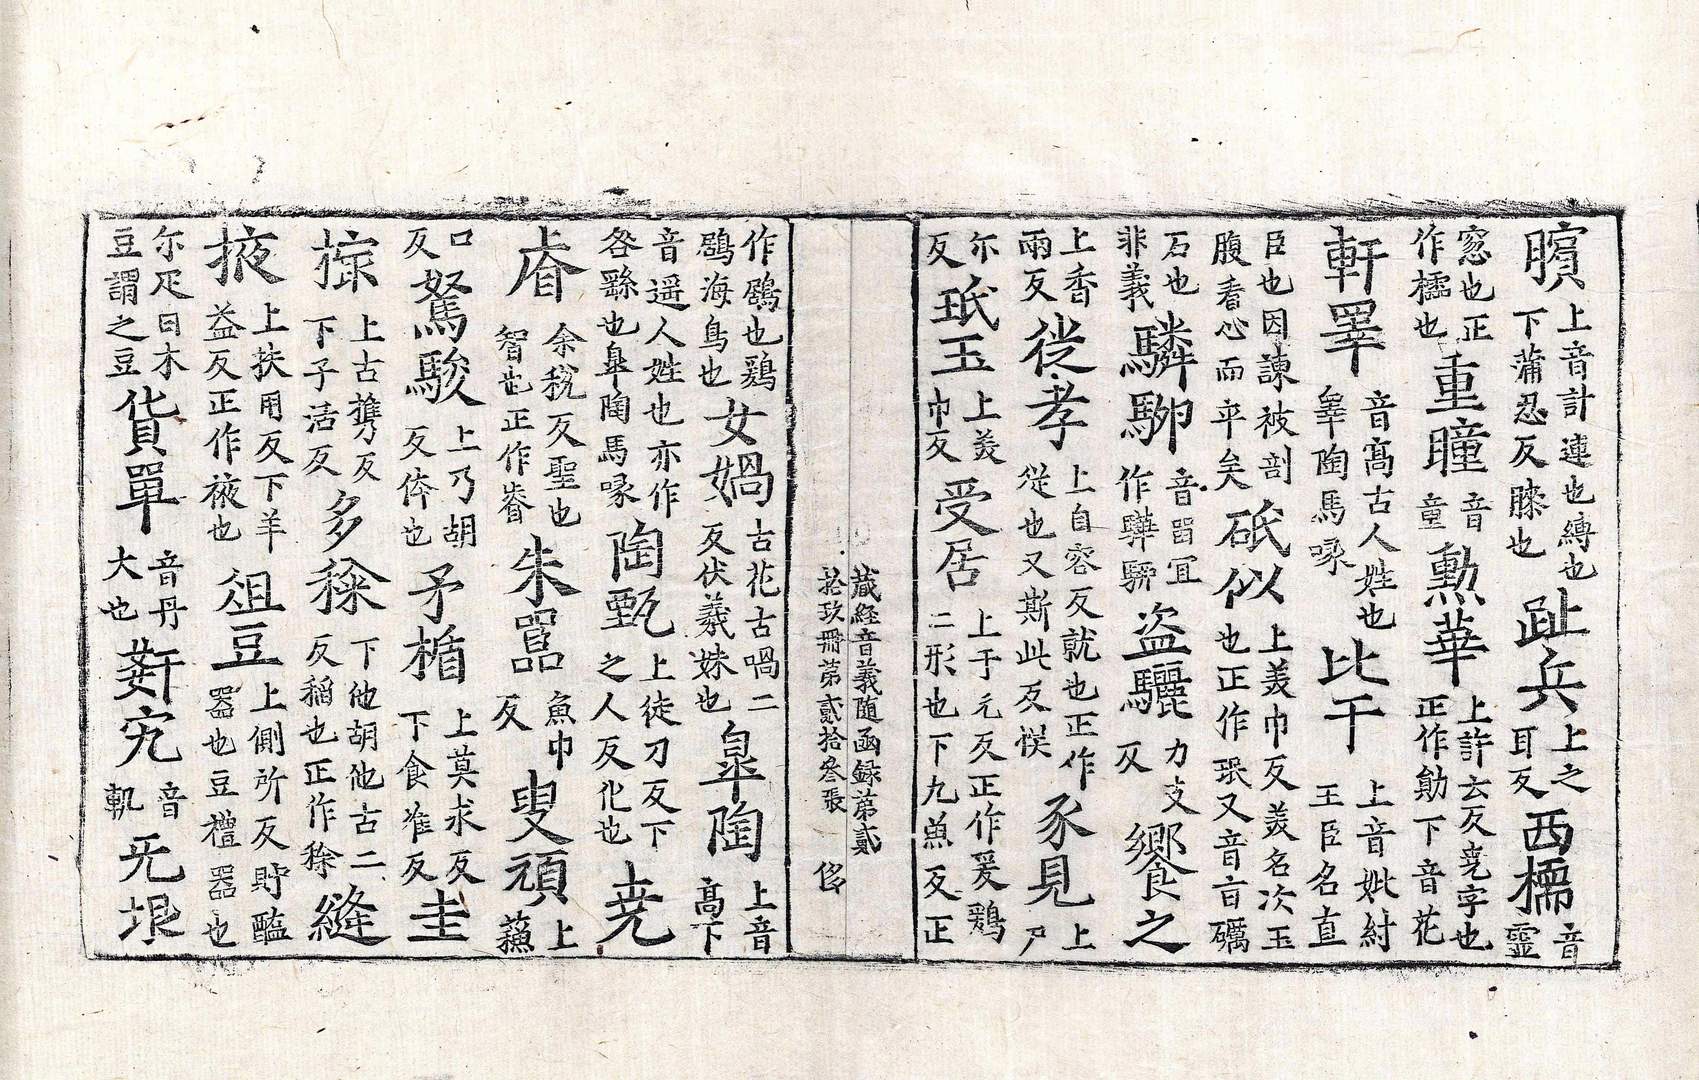 臏上音計連也縛也下蒲忍反膝也趾兵上之耳反西櫺音靈
窓也正作櫺也重瞳音童勲華上許云反堯字也正作勛下音花
軒睪音高古人姓也睾陶馬喙比干上音妣紂王臣名直
臣也因諫被剖腹看心而平矣砥似上羙巾反羙名次玉也正作珉又音盲礪
石也非義驎駠音留冝作驊騮盗驪力支反饗之
上香兩反從孝上自容反就也正作從也又斯此反悮豕見上尸
尓反珉玉上羙巾反受居二形也上于元反正作爰鶢下九魚反正
藏經音義随函録第貳拾玖冊第貳拾叄張 俻
作鶋也鶢鶋海鳥也女媧古花古喎二反伏羲妹也皐陶上音髙下
音遥人姓也亦作咎繇也皐陶馬喙陶甄上徒刀反下之人反化也堯
㫺余稅反聖也智也正作睿朱嚚魚巾反叟頑上蘓
口反駑駿上乃胡反下反侟也矛楯上莫求反下食准反圭
捺上古攜反下子活反多稌下他胡他古二反稲也正作稌縫
掖上扶用反下羊益反正作襏也俎豆上側所反貯醢器也豆禮器也
尓疋曰木豆謂之豆貨單音丹大也姧宄音軌无垠